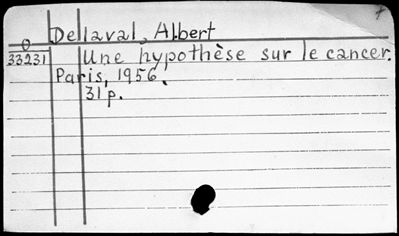 Dellaval, Albert
O
33231 Une hypothèse sur le cancer.
Paris, 1956.
31 p.